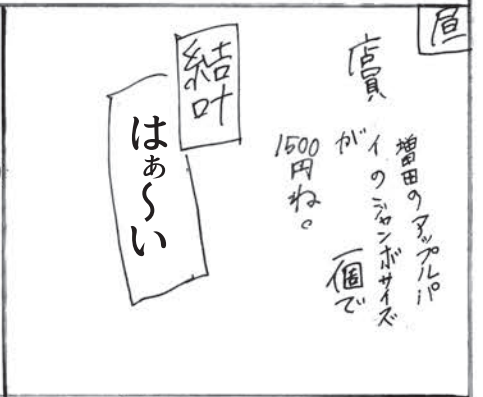 昼
店員
増田のアップルパ
イのジャンボサイズ
が 一個で
1500円ね。
結叶
はぁ〜い